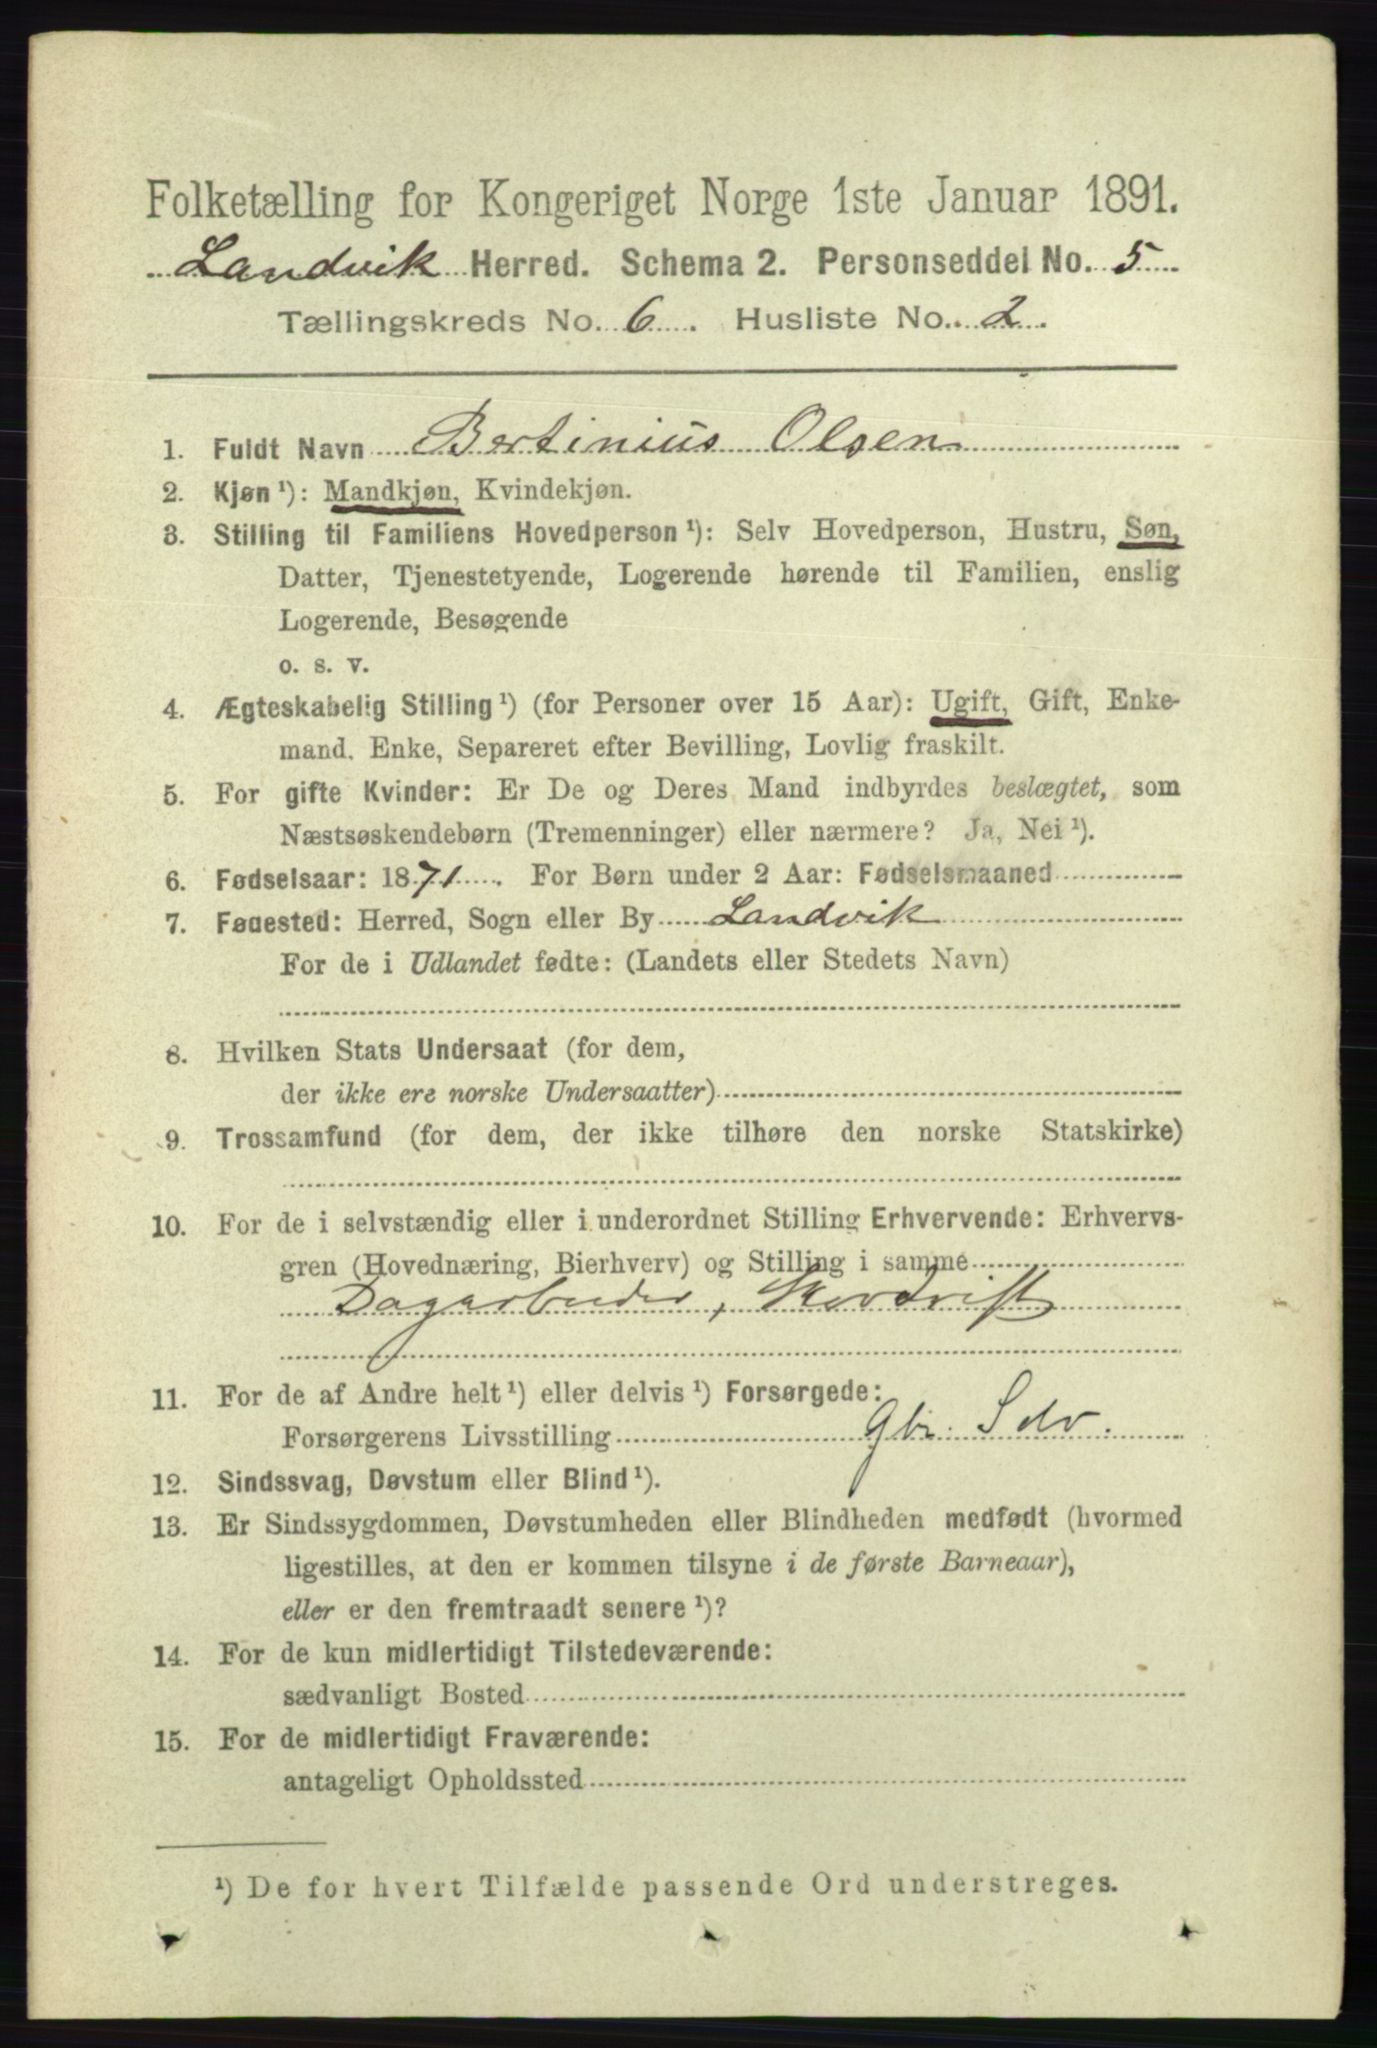 Folketælling for Kongeriget Norge 1ste Januar 1891.
Landvik Herred. Schema 2. Personseddel No. 5
Tællingskreds No. 6. Husliste No. 2.
1. Fuldt Navn Bertinius Olsen
2. Kjøn ¹): Mandkjøn, Kvindekjøn.
3. Stilling til Familiens Hovedperson ¹): Selv Hovedperson, Hustru, Søn,
Datter, Tjenestetyende, Logerende hørende til Familien, enslig
Logerende, Besøgende
o. s. v.
4. Ægteskabelig Stilling ¹) (for Personer over 15 Aar): Ugift, Gift, Enke-
mand, Enke, Separeret efter Bevilling, Lovlig fraskilt.
5. For gifte Kvinder: Er De og Deres Mand indbyrdes beslægtet, som
Næstsøskendebørn (Tremenninger) eller nærmere? Ja, Nei ¹).
6. Fødselsaar: 1871. For Børn under 2 Aar: Fødselsmaaned
7. Fødested: Herred, Sogn eller By Landvik
For de i Udlandet fødte: (Landets eller Stedets Navn)
8. Hvilken Stats Undersaat (for dem,
der ikke ere norske Undersaatter)
9. Trossamfund (for dem, der ikke tilhøre den norske Statskirke)
10. For de i selvstændig eller i underordnet Stilling Erhvervende: Erhvervs-
gren (Hovednæring, Bierhverv) og Stilling i samme
Dagarbeider, Skovdrift
11. For de af Andre helt ¹) eller delvis ¹) Forsørgede:
Forsørgerens Livsstilling Gbr. Selv.
12. Sindssvag, Døvstum eller Blind ¹).
13. Er Sindssygdommen, Døvstumheden eller Blindheden medfødt (hvormed
ligestilles, at den er kommen tilsyne i de første Barneaar),
eller er den fremtraadt senere ¹)?
14. For de kun midlertidigt Tilstedeværende:
sædvanligt Bosted
15. For de midlertidigt Fraværende:
antageligt Opholdssted
¹) De for hvert Tilfælde passende Ord understreges.